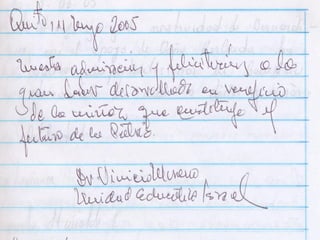 Quito, 14 Mayo 2005
Nuestra admiración y felicitación a la
gran labor desarrollada en beneficio
de la niñez que constituye el
futuro de la Patria.
Dr Vinicio Moreno
Unidad Educativa Israel